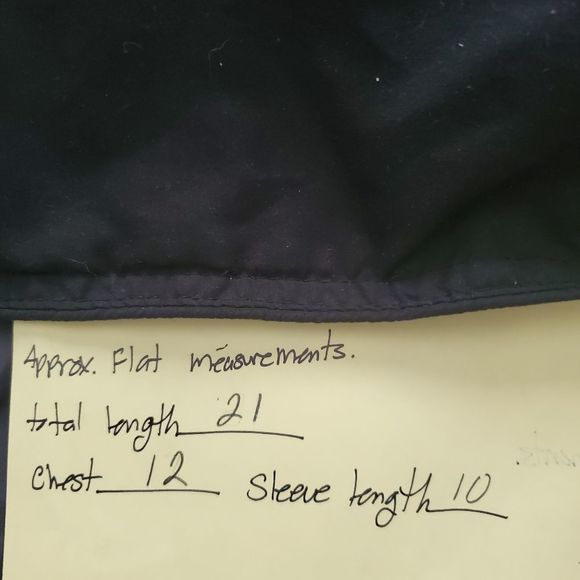 Approx. Flat measurements.
total length 21
Chest 12 Sleeve length 10